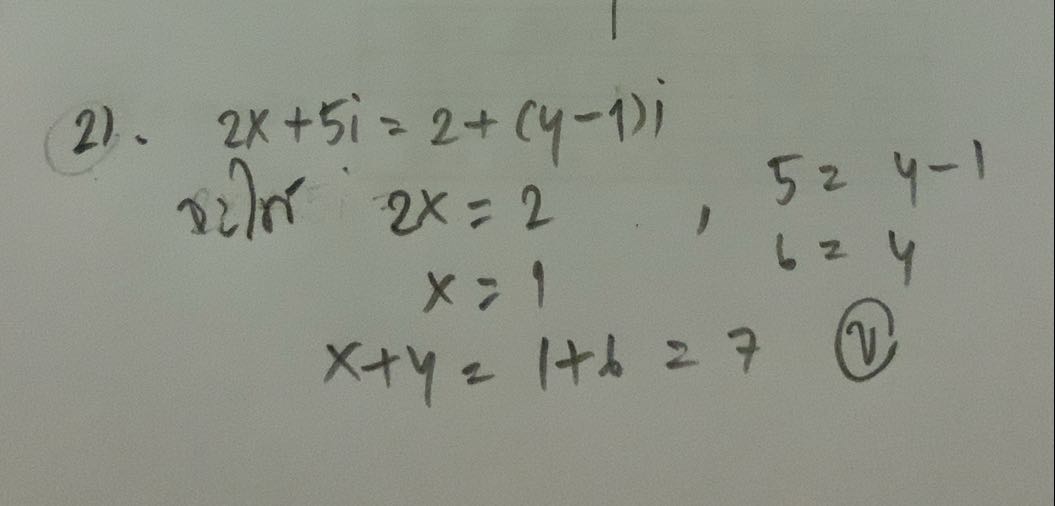 2). 2x+5i = 2+(y-1)i
จะได้ 2x = 2 , 5 = y-1
x = 1 6 = y
x+y = 1+6 = 7 ข